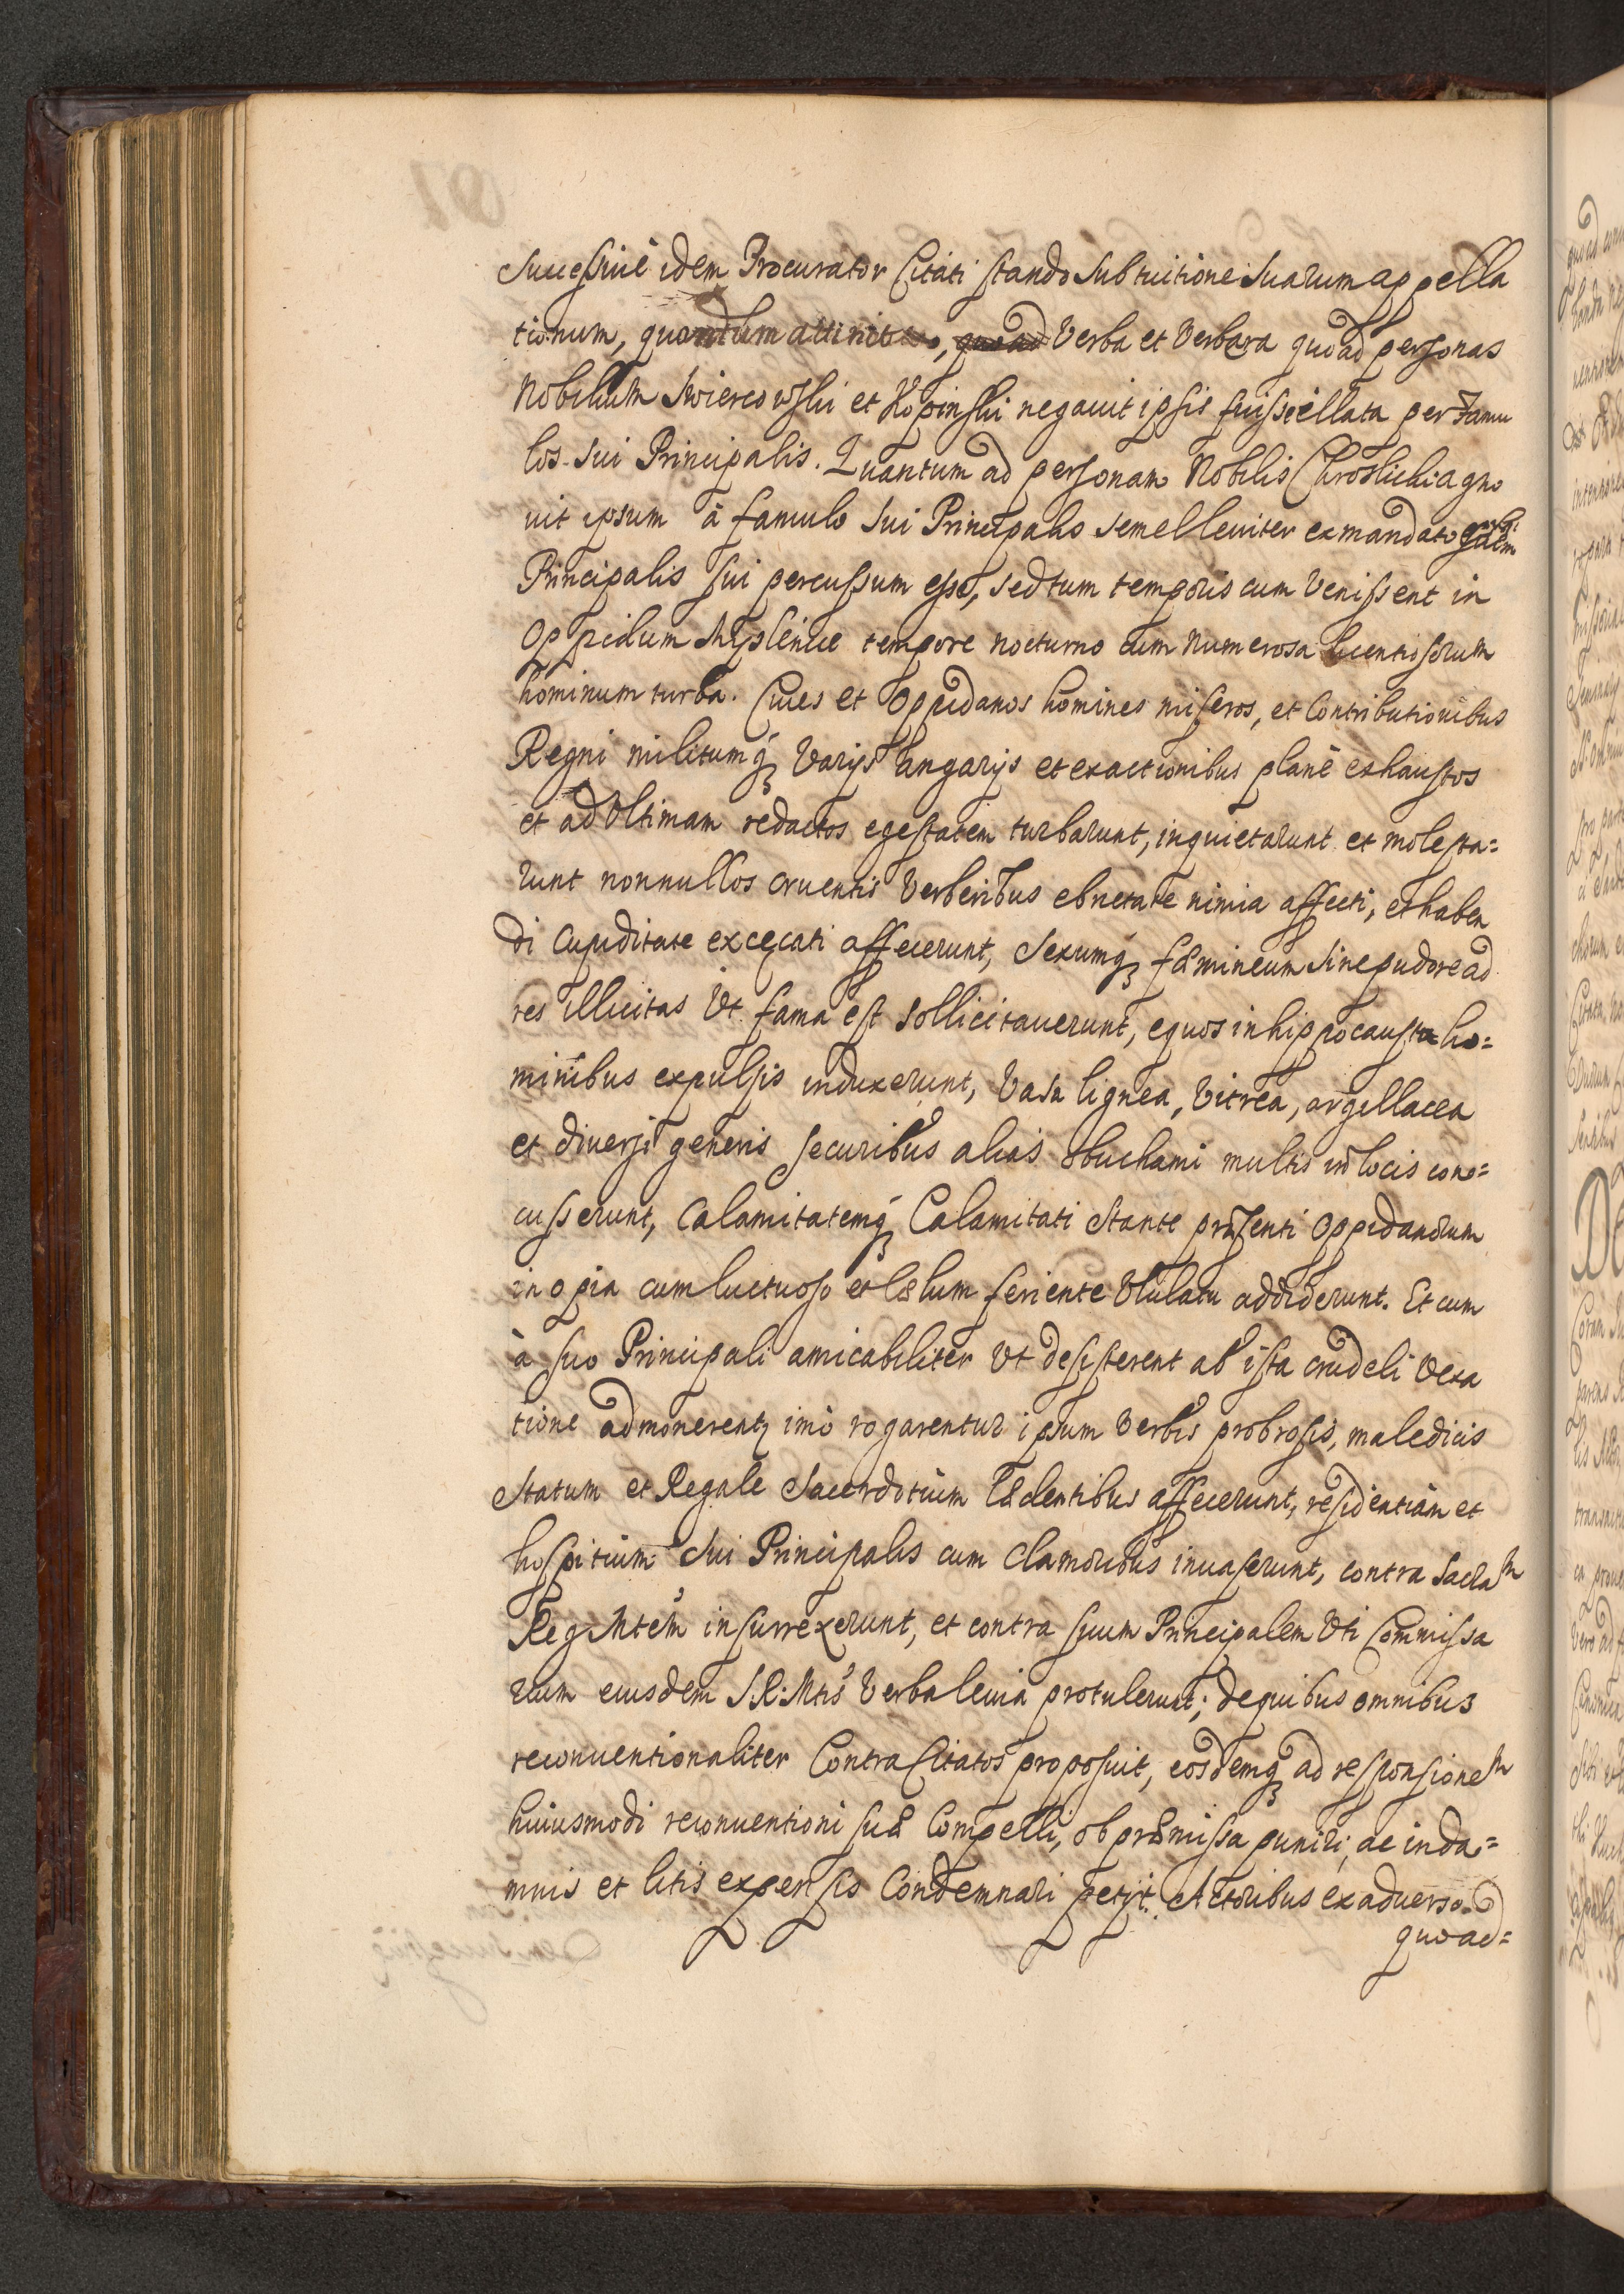 Successiuè idem Procurator Citati stando sub tuitione suarum appella
tionum, quantum attinet, quoad Verba et Verbera quoad personas
Nobilium Swierczowski et Kopinski negauit ipsis fuisse illata per Famu
los sui Principalis. Quantum ad personam Nobilis Chroslicki agno
uit ipsum à famulo sui Principalis semel leuiter ex mandato
Principalis sui percussum esse, sed tum temporis cum Venissent in
Oppidum Myslenice tempore nocturno cum numerosa licentiosorum
hominum turba. Ciues et Oppidanos homines miseros, et Contributionibus
Regni militumq́ꝫ Varijs angarijs et exactionibus planè exhaustos
et ad Vltimam redactos egestatem turbarunt, inquietarunt et molesta=
runt nonnullos cruentis Verberibus ebrietate nimia affecti, et haben
di Cupiditate excęcati affecerunt, Sexumq́ꝫ fæmineum sine pudore ad
res illicitas Vt fama est sollicitauerunt, equos in hippocausta ho=
minibus expulsis induxerunt, Vasa lignea, Vitrea, argillacea
et diuersi generis securibus alias obuchami multis in locis con=
cusserunt, Calamitatemq́ꝫ Calamitati stante præsenti Oppidanorum
inopia cum luctuoso et Cælum feriente Vlulatu addiderunt. Et cum
à suo Principali amicabiliter Vt desisterent ab ista crudeli Vexa
tione admonerentꝫ imò rogarentur ipsum Verbis probrosis, maledicis
Statum et Regale Sacerdotium lædentibus affecerunt, residentiam et
hospitium Sui Principalis cum Clamoribus inuaserunt, contra Sacram
Reg Mtem insurrexerunt, et contra suum Principalem Vti Commissa
rium eiusdem S:R:Mtis Verba leuia protulerunt; de quibus omnibus
reconuentionaliter Contra Citatos proposuit, eosdemq́ꝫ ad responsionem
huiusmodi reconuentioni suæ Compelli, ob præmissa puniri, ac in da=
mnis et litis expensis Condemnari petijt. Actoribus ex aduerso
quoad=